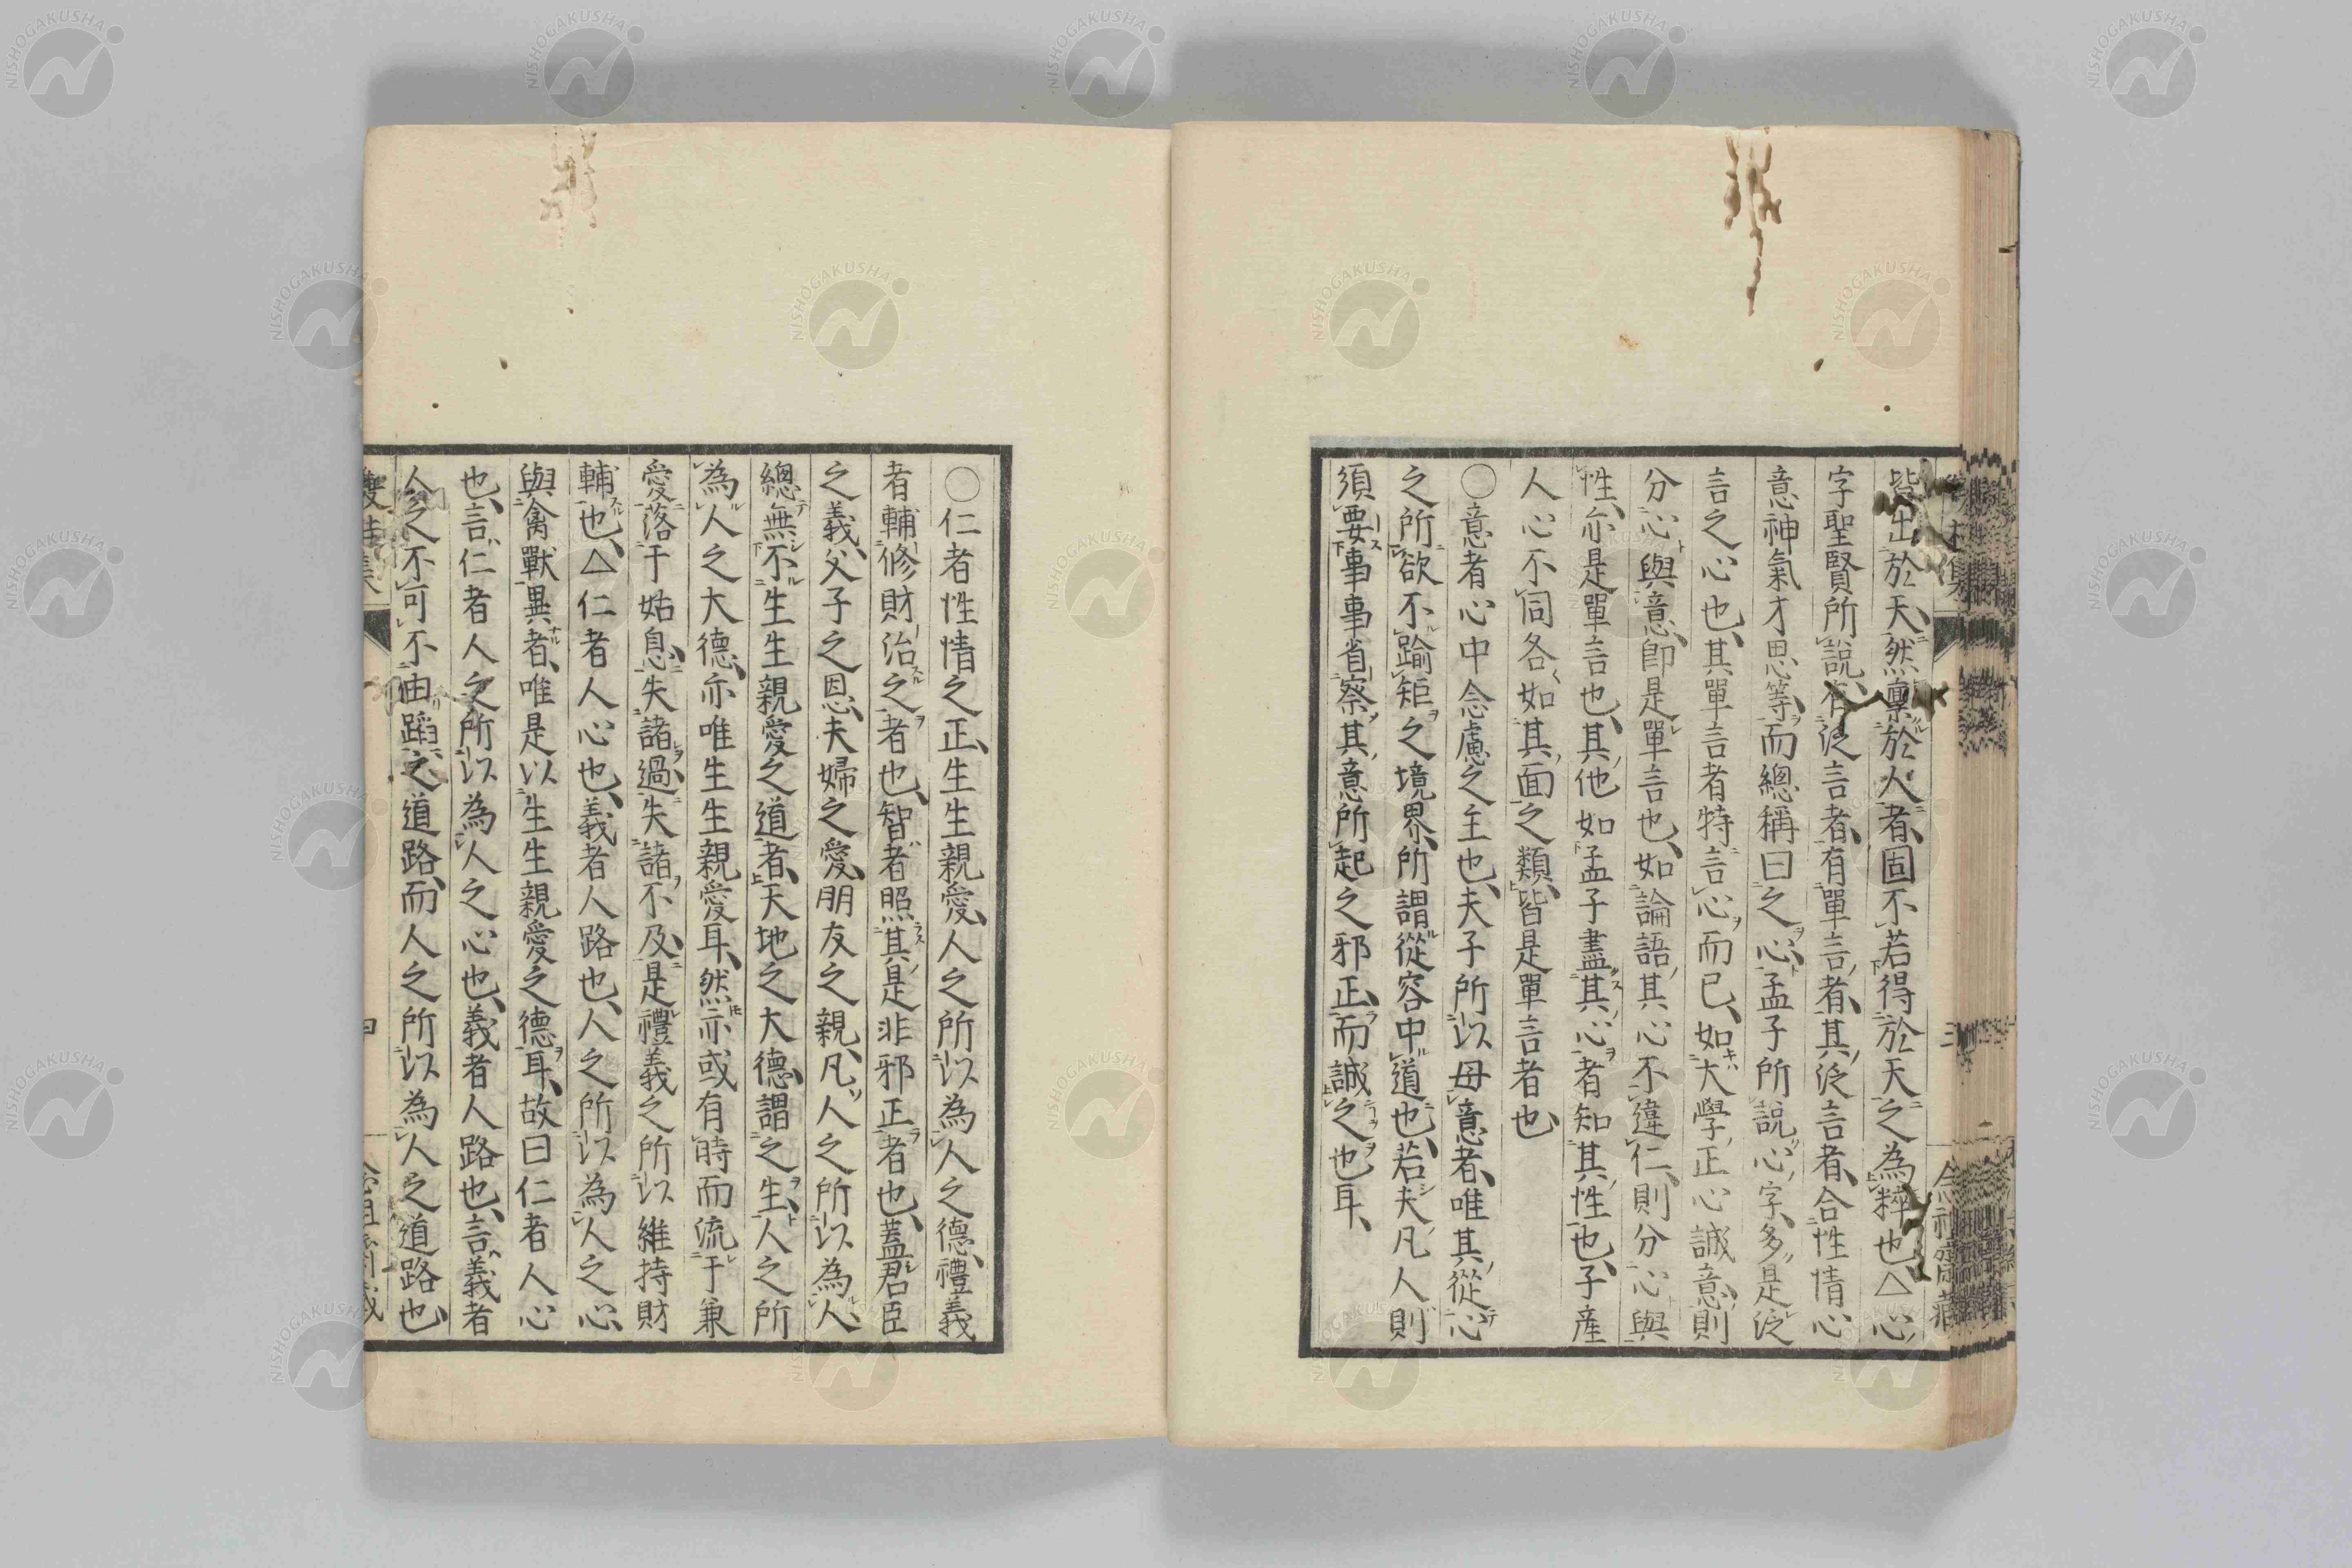 皆出於天、然稟於人者、固不若得於天之為粹也、△心
字聖賢所說、有泛言者、有單言者、其泛言者、合性情心
意神氣才思等、而總稱曰之心、孟子所說心字、多是泛
言之心也、其單言者特言心而已、如大學正心誠意、則
分心與意、卽是單言也、如論語其心不違仁、則分心與
性、亦是單言也、其他如孟子盡其心者知其性也、子產
人心不同各如其面之類、皆是單言者也
〇意者心中念慮之主也、夫子所以毋意者、唯其從心
之所欲不踰矩之境界、所謂從容中道也、若夫凡人則
須要事事省察其意所起之邪正、而誠之也耳、
〇仁者性情之正、生生親愛、人之所以為人之德、禮義
者輔修財治之者也、智者照其是非邪正者也、蓋君臣
之義、父子之恩、夫婦之愛、朋友之親、凡人之所以為人、
總無不生生親愛之道者、天地之大德謂之生、人之所
為人之大德、亦唯生生親愛耳、然亦或有時而流于兼
愛落于姑息、失諸過失諸不及、是禮義之所以維持財
輔也、△仁者人心也、義者人路也、人之所以為人之心、
與禽獸異者、唯是以生生親愛之德耳、故曰仁者人心
也、言仁者人之所以為人之心也、義者人路也、言義者
人之不可不由蹈之道路、而人之所以為人之道路也、
NISHOGAKUSHA